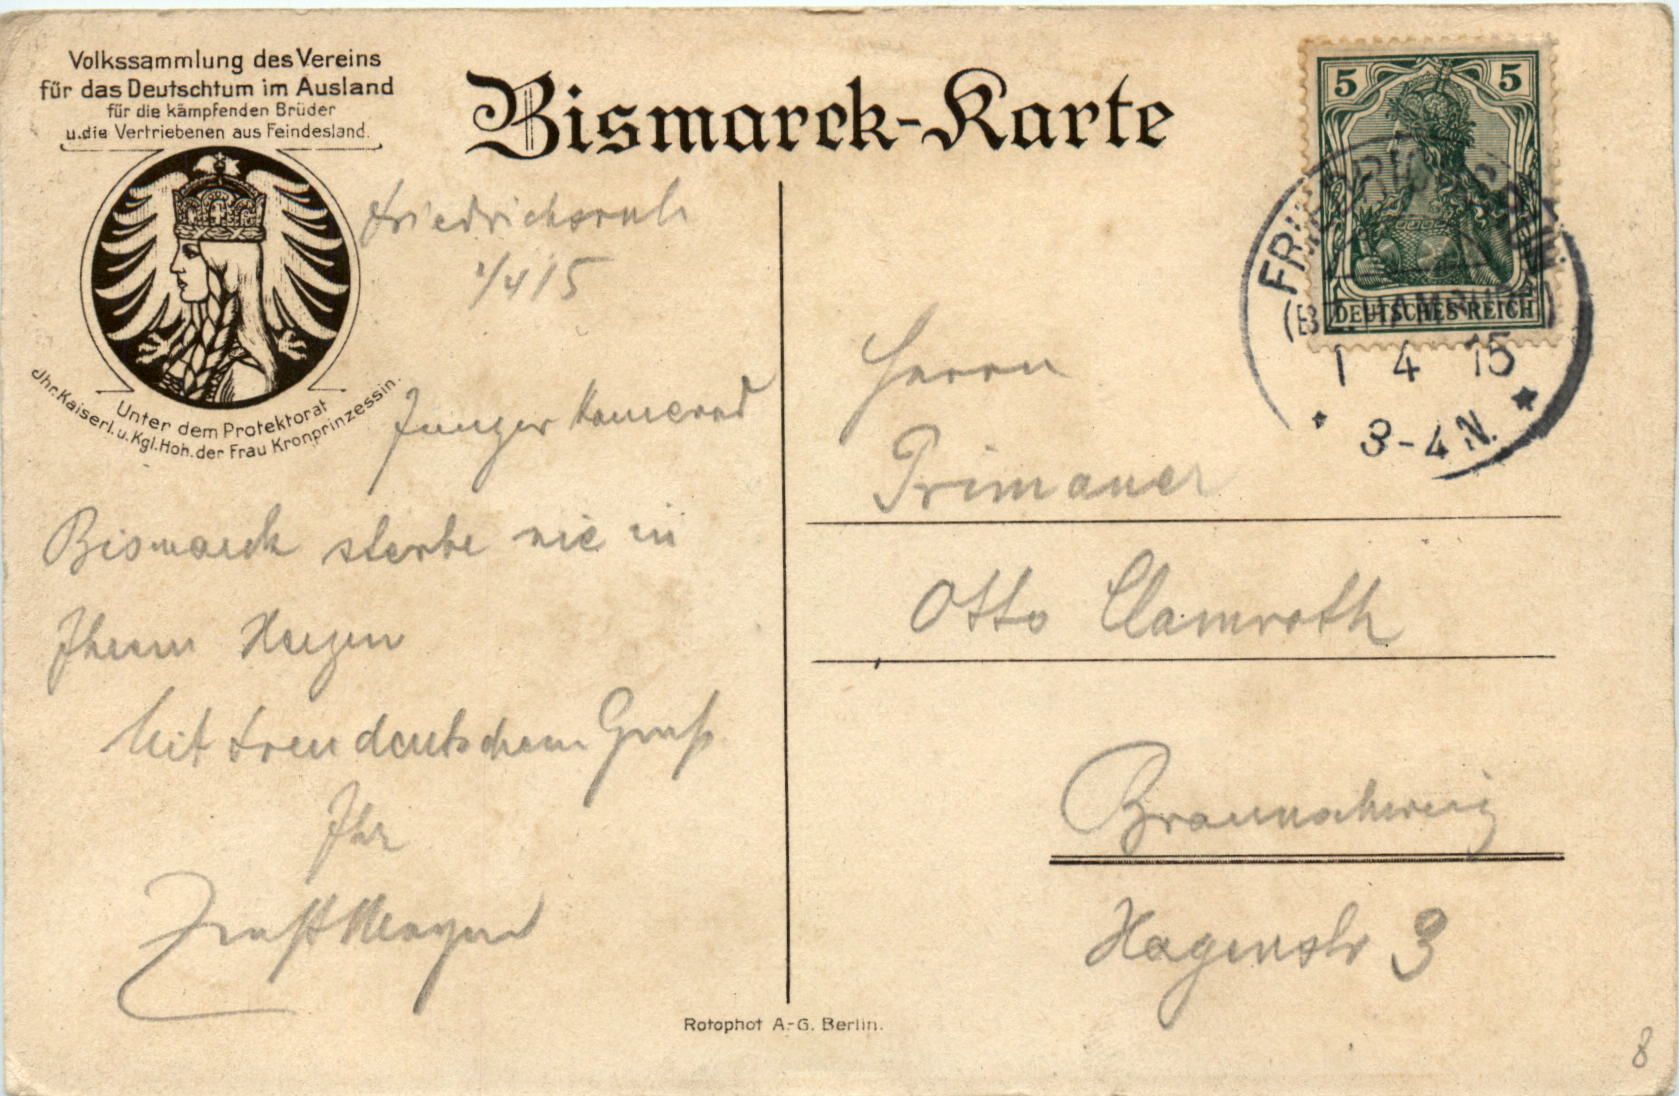 Volkssammlung des Vereins
für das Deutschtum im Ausland
für die kämpfenden Brüder
u.die Vertriebenen aus Feindesland.
Unter dem Protektorat
Jhr.Kaiserl.u.Kgl.Hoh.der Frau Kronprinzessin.
Bismarck-Karte
5 5
DEUTSCHES REICH
1 4 15
3-4 N.
Friedrichsruh
1/4 15
Junger Kamerad
Bismarck sterbe nie in
Ihrem Herzen
Mit treudeutschem Gruß
Ihr
Ernst
Herrn
Primaner
Otto Clamroth
Braunschweig
Hagenstr 3
Rotophot A.-G. Berlin.
8